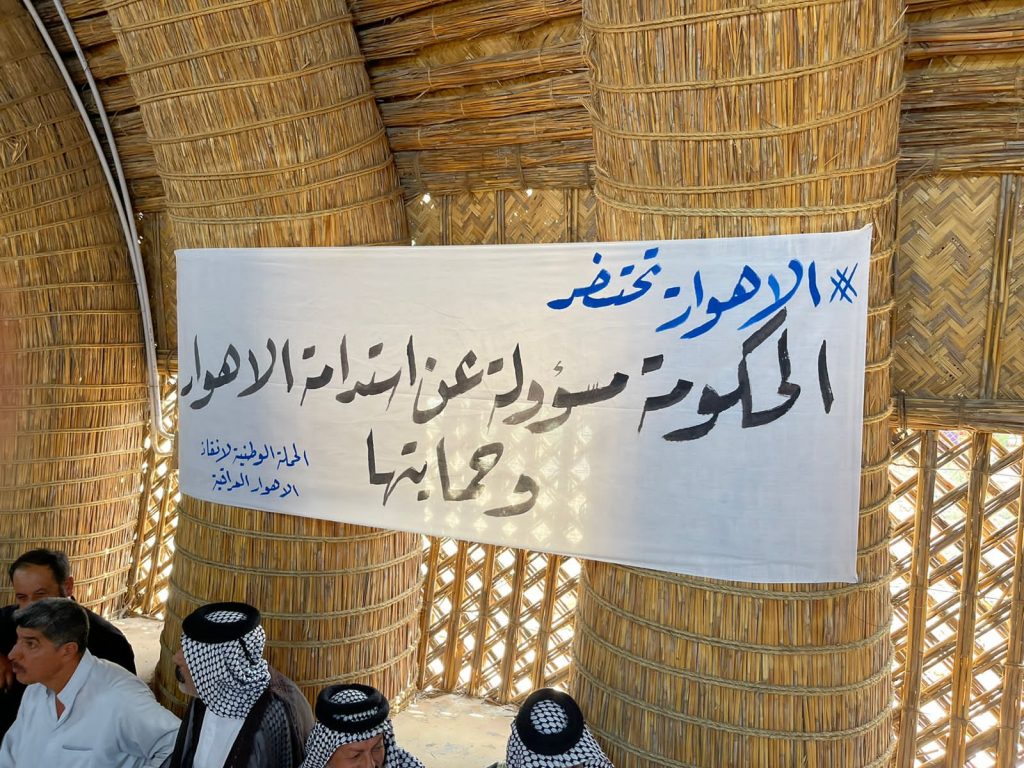 #الاهوار تحتضر
الحكومة مسؤولة عن استدامة الاهوار
وحمايتها
الحملة الوطنية لانقاذ
الاهوار العراقية